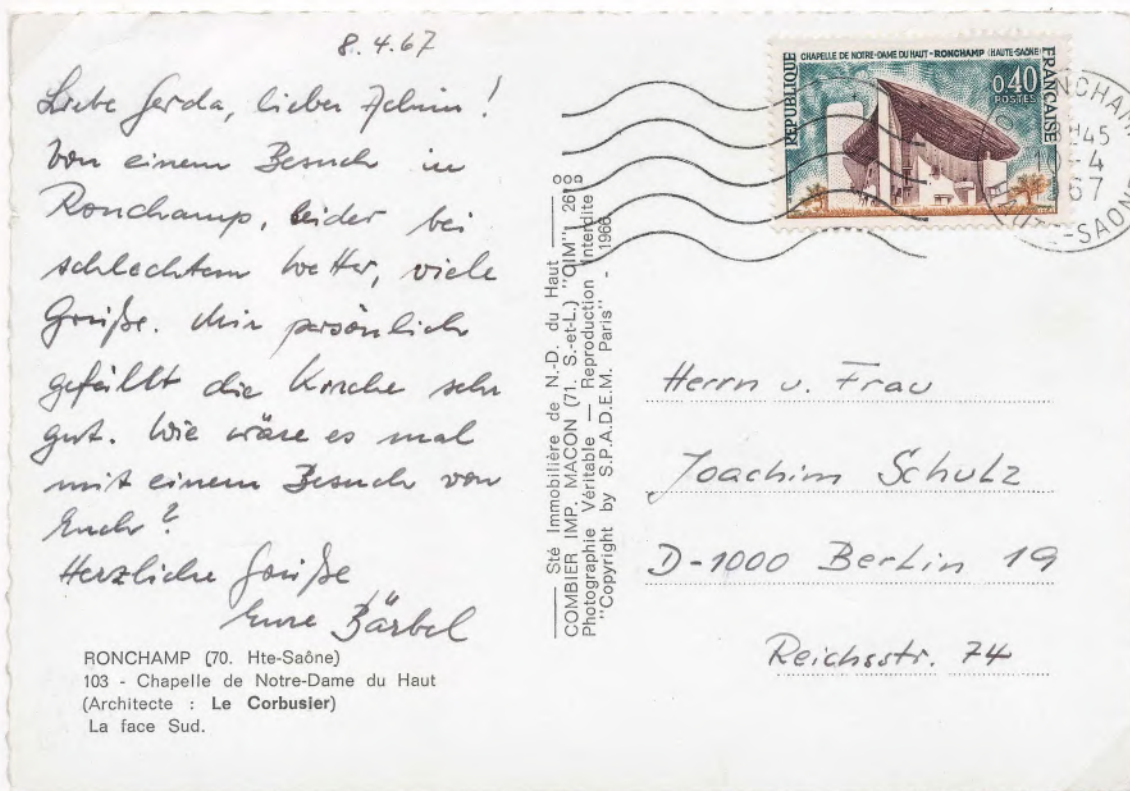 8.4.67
Liebe Gerda, lieber Achim!
Von einem Besuch in
Ronchamp, leider bei
schlechtem Wetter, viele
Grüße. Mir persönlich
gefällt die Kirche sehr
gut. Wie wäre es mal
mit einem Besuch von
Euch?
Herzliche Grüße
Eure Bärbel
RONCHAMP (70. Hte-Saône)
103 - Chapelle de Notre-Dame du Haut
(Architecte : Le Corbusier)
La face Sud.
Sté Immobilière de N.-D. du Haut
COMBIER IMP. MACON (71. S.-et-L.) "CIM"
Photographie Véritable — Reproduction Interdite
"Copyright by S.P.A.D.E.M. Paris" - 1966
REPUBLIQUE FRANÇAISE
CHAPELLE DE NOTRE-DAME DU HAUT - RONCHAMP (HAUTE-SAÔNE)
0,40
POSTES
RONCHAMP
H45
10-4
67
HAUTE-SAONE
Herrn u. Frau
Joachim Schulz
D-1000 Berlin 19
Reichsstr. 74